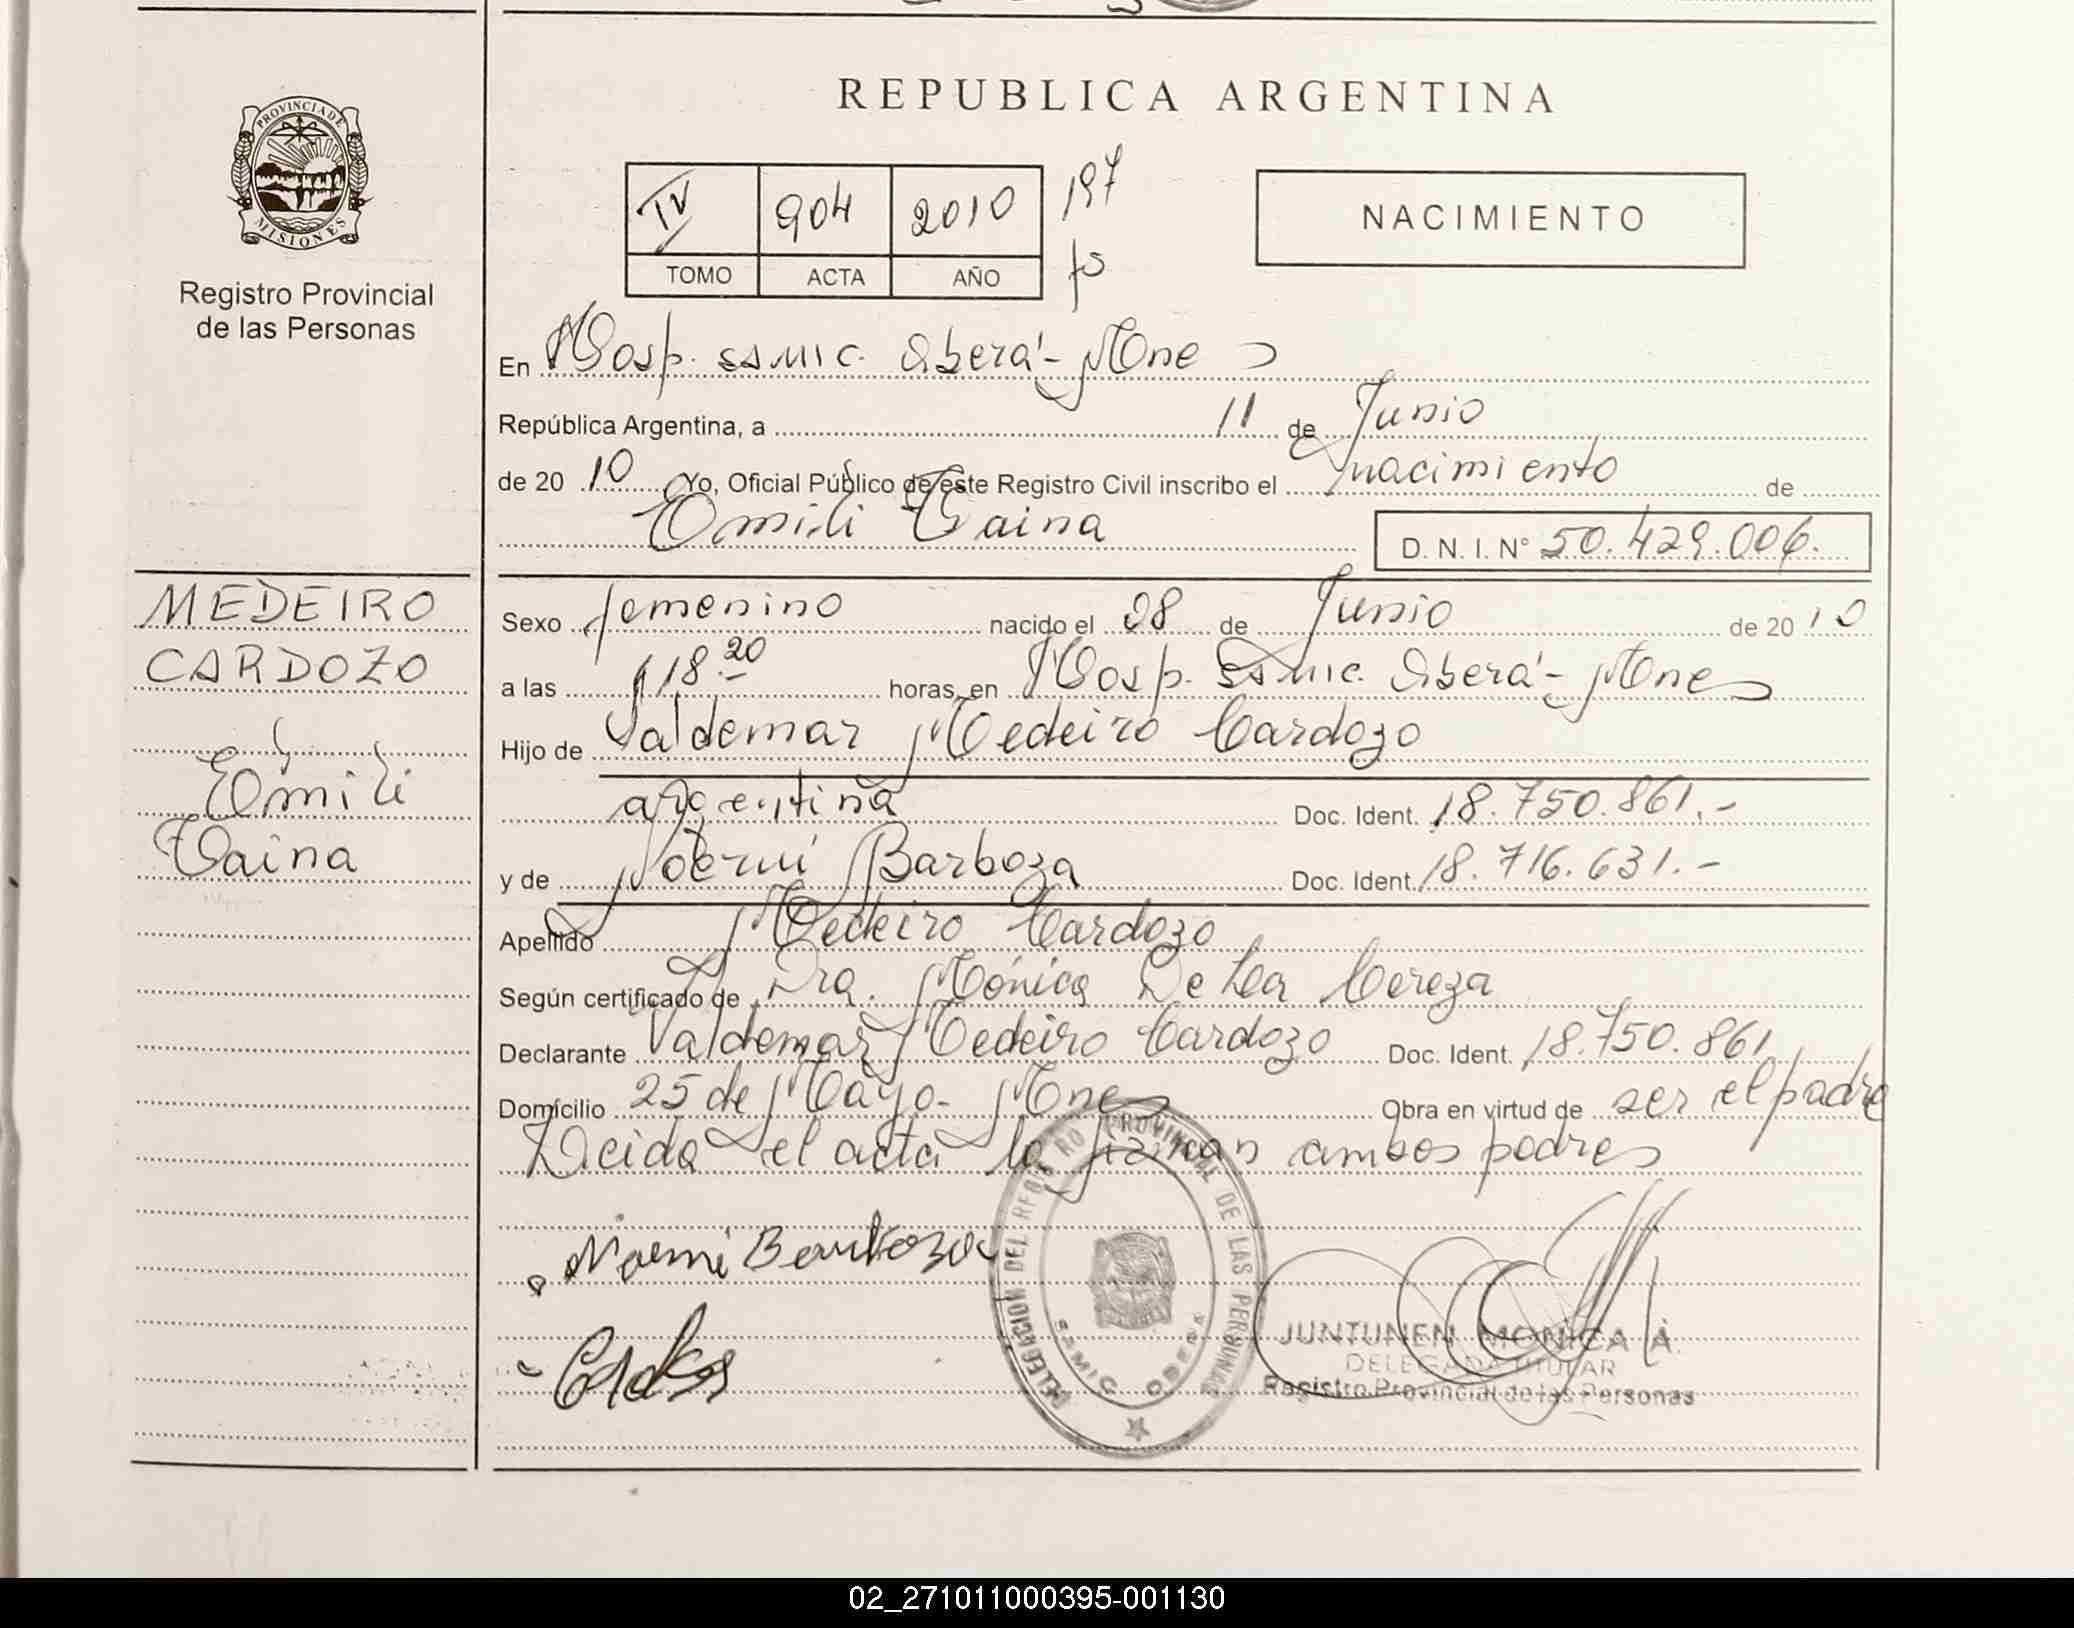 PROVINCIA DE
MISIONES
Registro Provincial
de las Personas
REPUBLICA ARGENTINA
IV 904 2010 197
TOMO ACTA AÑO fs
NACIMIENTO
En Hosp. SSMIC. Oberá - Mnes
República Argentina, a 11 de Junio
de 20 10 Yo, Oficial Público de este Registro Civil inscribo el nacimiento de
Emili Taina D. N. I. N° 50.429.006.
MEDEIRO
CARDOZO
Emili
Taina
Sexo femenino nacido el 08 de Junio de 20 10
a las 18.20 horas, en Hosp. SSMIC. Oberá - Mnes
Hijo de Valdemar Medeiro Cardozo
argentina Doc. Ident. 18.750.861.-
y de Noemí Barboza Doc. Ident. 18.716.631.-
Apellido Medeiro Cardozo
Según certificado de Dra. Mónica De La Cereza
Declarante Valdemar Medeiro Cardozo Doc. Ident. 18.750.861
Domicilio 25 de Mayo - Mnes Obra en virtud de ser el padre
Leida el acta la firman ambos padres
Noemi Barboza
DELEGACION DEL REGISTRO PROVINCIAL DE LAS PERSONAS
SAMIC OBERA
JUNTUNEN MONICA A.
DELEGADA TITULAR
Registro Provincial de las Personas
02_271011000395-001130